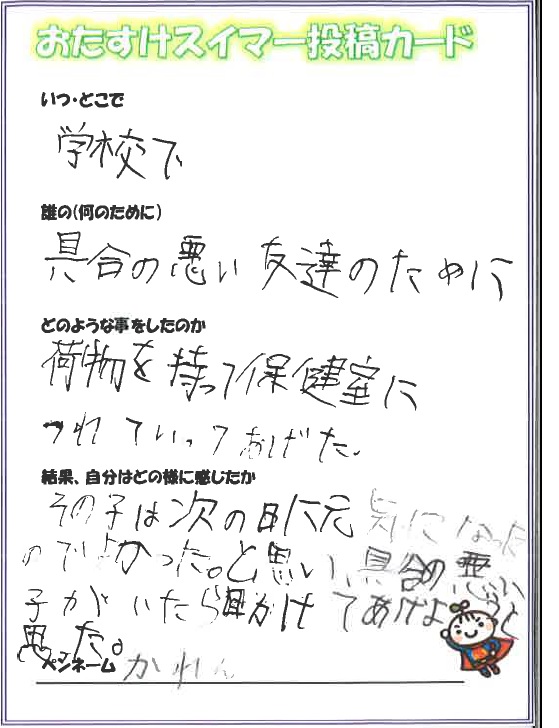 おたすけスイマー投稿カード
いつ・どこで
学校で
誰の(何のために)
具合の悪い友達のために
どのような事をしたのか
荷物を持って保健室に
つれていってあげた。
結果、自分はどの様に感じたか
その子は次の日に元気になった
のでよかった。と思い、具合の悪い
子がいたら助けてあげようと
思った。
ペンネーム かれん